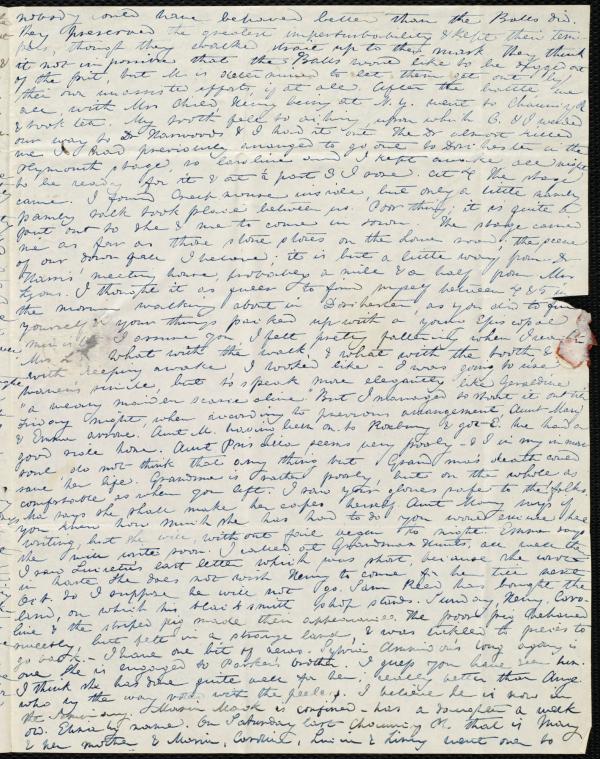 nobody could have behaved better than the Balls did.
They preserved the greatest imperturbability & kept their tem-
pers, though they walked straight up to their mark they think
it not impossible that the Balls would like to be
of the pit, but M is determined to let them get out by
their own unassisted efforts, if at all. After the battle, we
all with Mrs Child, Henry being at N.Y. went to Chauncy's
& took tea. My tooth fell to aching, upon which C. & I walked
our way to Dr Harwoods & I had it out. The Dr almost killed
me. I had previously arranged to go out to Dorchester in the
Plymouth stage, so Caroline and I kept awake all night
to be ready for it & at ½ past 3 I rose. at 4 the stage
came. I found inside but only a little namby
pamby talk took place between us. Poor thing, it is quite a
put out to she & me to come in town. The stage carried
me as far as those stone posts on the lower road, the scene
of our down fall I believe, it is but a little way from Dr
Harris' meeting house, probably a mile & a half from Mrs
Lyons. I thought it as queer to find myself between 4 & 5 in
the morn walking about in Dorchester, as you did to find
yourself & your things packed up with a young Episcopal
minister. I assure you, I felt pretty faltering when I reach
Mrs L what with the walk, & what with the tooth &
with keeping awake, I looked like - I was going to use
simile, but to speak more elegantly like Geraldine
"a weary maiden scarce alive" But I managed to it out till
Friday night, when according to previous arrangement Aunt Mary
& Emma arrove. Aunt M. having been on to Roxbury & got E. We had a
good ride home. Aunt Priscilla seems very poorly - & I in my inmost
soul do not think that any thing but Grand mas death could
save her life. Grandma is rather poorly, but on the whole as
comfortable as when you left. I saw your gloves safe to the folks.
she says she shall make her capes herself Aunt Mary says if
you knew how much she has had to do you would excuse her
writing, but she will, without fail began to night. Emma says
she I will write soon. I called at Grandmas Aunts, all well there
I saw Lucretia's last letter which was short, because she wrote
in haste. She does not wish Henry to come for her till next
Oct. so I suppose he will not go. Sam Reed has bought the
land, on which his blacksmith shop stands. Sunday, Henry, Caro-
line & the striped pig made their appearance. The poor pig behaved
sweetly, but felt in a strange land, & was tickled to pieces to
go back. I have one bit of news. Sylvia Ammidon's long agony is
one She is engaged to Parker's brother. I guess you have seen him.
I think she has done quite well for her, really better than Ange
who by the way with the . I believe he is now in
the Maria Mack is confined has a daughter a week
old. Emma by name. On Saturday last Chauncy M. that is Mary
& her mother & Maria, Caroline, & went over to